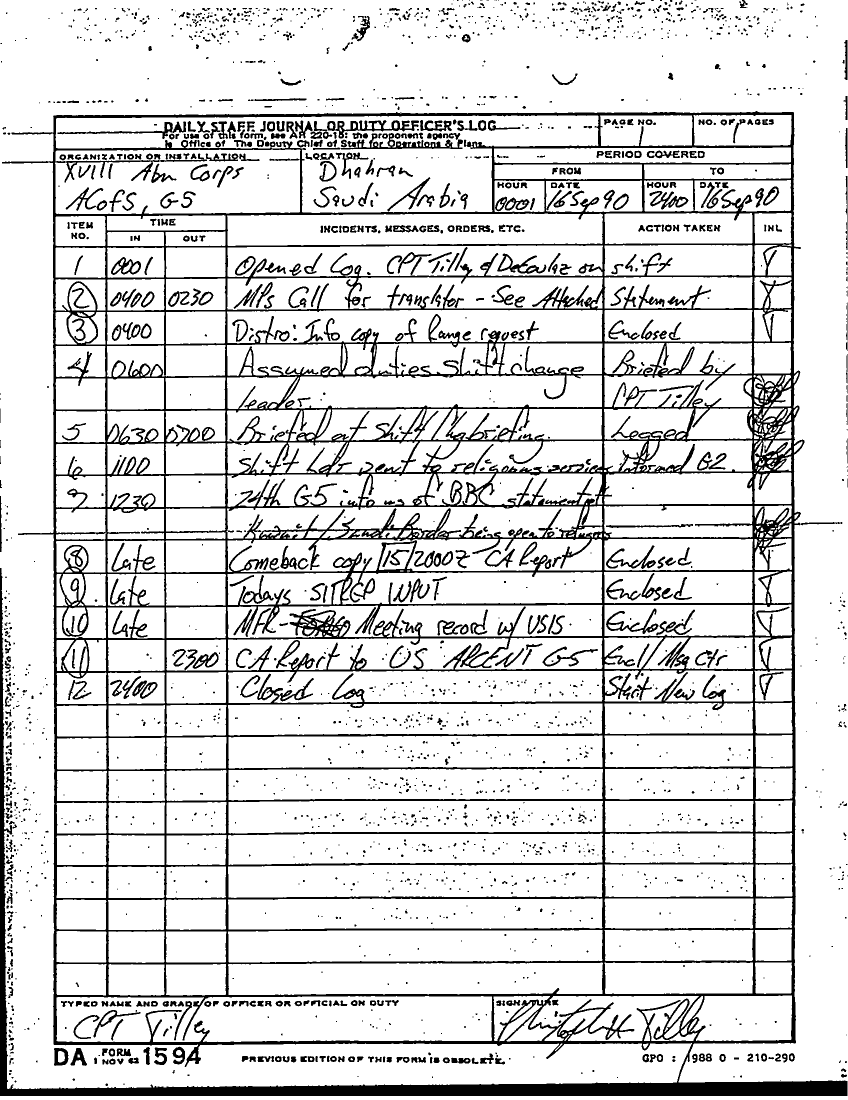 DAILY STAFF JOURNAL OR DUTY OFFICER'S LOG
For use of this form, see AR 220-15: the proponent agency
is Office of The Deputy Chief of Staff for Operations & Plans.
PAGE NO.
1
NO. OF PAGES
1
ORGANIZATION OR INSTALLATION
XVIII Abn Corps
ACofS, G5
LOCATION
Dhahran
Saudi Arabia
PERIOD COVERED
FROM TO
HOUR DATE HOUR DATE
0001 16 Sep 90 2400 16 Sep 90
ITEM NO. TIME INCIDENTS, MESSAGES, ORDERS, ETC. ACTION TAKEN INL
IN OUT
1 0001 Opened Log. CPT Tilley & on shift
2 0400 0230 MPs Call for translator - See Attached Statement
3 0400 Distro: Info copy of Range request Enclosed
4 0600 Assumed duties. Shift change Briefed by
leader. CPT Tilley
5 0630 0700 Briefed at Shift briefing. Logged
6 1100 Shift Ldr went to religious services Informed G2.
7 1230 24th G5 info us of BBC statement of
Kuwait/Saudi Border being open to refugees
8 Late Comeback copy 15/2000Z CA Report Enclosed.
9 Late Todays SITREP INPUT Enclosed
10 Late MFR- Meeting record w/ USIS Enclosed
11 2300 CA Report to US ARCENT G5 Encl/Msg Ctr
12 2400 Closed Log Start New Log
TYPED NAME AND GRADE OF OFFICER OR OFFICIAL ON DUTY
CPT Tilley
SIGNATURE
Tilley
DA FORM 1 NOV 62 1594
PREVIOUS EDITION OF THIS FORM IS OBSOLETE.
GPO : 1988 O - 210-290